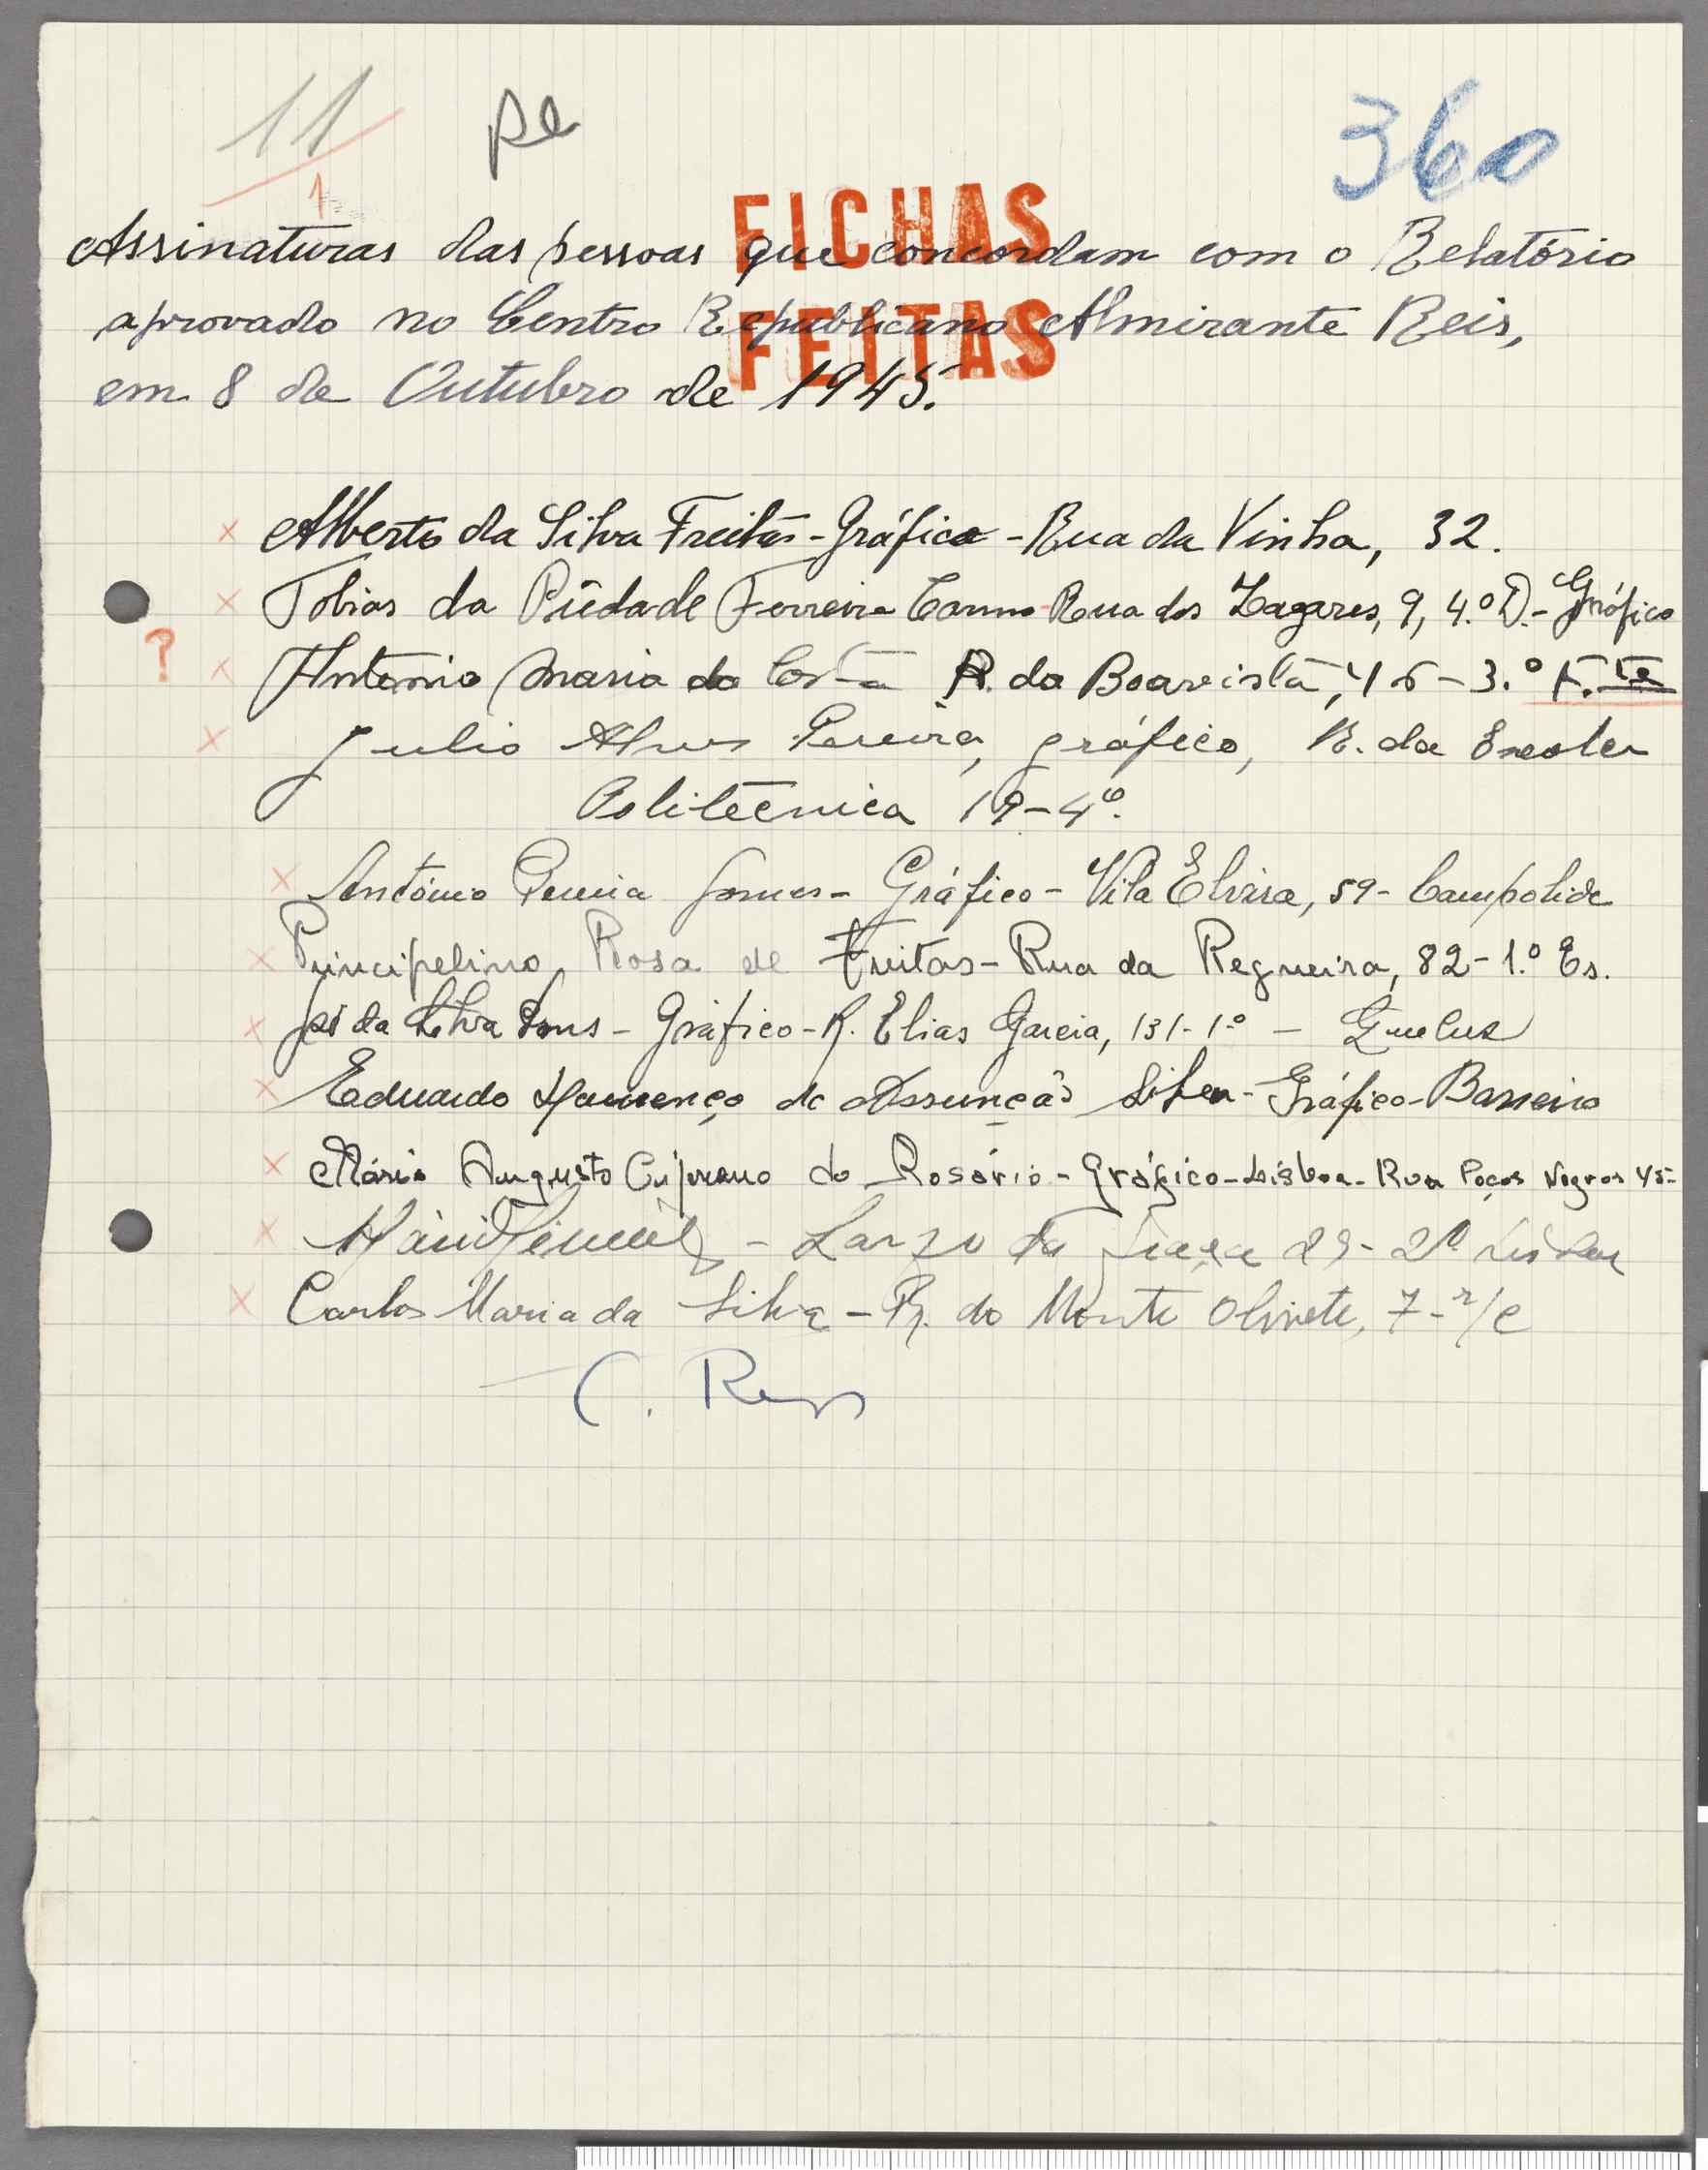 11
pe
360
1
FICHAS
FEITAS
Assinaturas das pessoas que concordam com o Relatório
aprovado no Centro Republicano Almirante Reis,
em 8 de Outubro de 1945.
Alberto da Silva Freitas - Gráfico - Rua da Vinha, 32.
Tobias da Piedade Ferreira - Rua dos Lagares, 9, 4.º D. - Gráfico
? Antonio Maria da Costa R. da Boavista, 46 - 3.º F.te
Julio Alves Pereira, gráfico, R. da Escola
Politécnica 19-4º.
António Pereira Gomes - Gráfico - Vila Elvira, 59 - Campolide
Principelino Rosa de Freitas - Rua da Regueira, 82 - 1.º Es.
José da Silva - Gráfico - R. Elias Garcia, 131-1.º - Queluz
Eduardo Lourenço de Assunção Silva - Gráfico - Barreiro
Mário Augusto Cipriano do Rosário - Gráfico - Lisboa - Rua Poços Negros 45-
- Largo da Graça 29 - 2º Lisboa
Carlos Maria da Silva - R. do Monte Olivete, 7 - r/c
C.